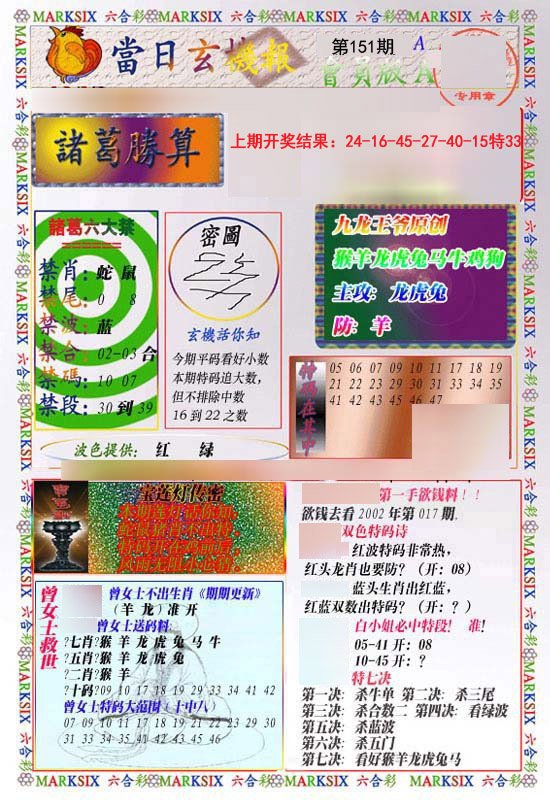 MARKSIX 六合彩 MARKSIX 六合彩 MARKSIX 六合彩 MARKSIX 六合彩
當日玄機報
第151期
會員版A
专用章
諸葛勝算
上期开奖结果：24-16-45-27-40-15特33
諸葛六大禁
======
禁肖：蛇 鼠
禁尾：0 8
禁波：蓝
禁合：02-03 合
禁碼：10 07
禁段：30 到 39
密圖
玄機話你知
今期平码看好小数
本期特码追大数，
但不排除中数
16 到 22 之数
九龙王爷原创
猴羊龙虎兔马牛鸡狗
主攻：龙虎兔
防：羊
特码在其中
05 06 07 09 10 11 17 18 19
21 22 23 29 30 31 33 34 35
41 42 43 45 46 47
波色提供： 红 绿
宝莲灯传密
第一手欲钱料！！
欲钱去看 2002 年第 017 期.
双色特码诗
红波特码非常热，
红头龙肖也要防？（开：08）
蓝头生肖出红蓝，
红蓝双数出特码？（开：？）
白小姐必中特段！ 准！
05-41 开：08
10-45 开：？
特七决
第一决：杀牛单 第二决：杀三尾
第三决：杀合数二 第四决：看绿波
第五决：杀蓝波
第六决：杀五门
第七决：看好猴羊龙虎兔马
曾女士救世
曾女士不出生肖《期期更新》
（羊 龙）准 开
曾女士送码料：
?七肖?猴 羊 龙 虎 兔 马 牛
?五肖?猴 羊 龙 虎 兔
?二肖?猴 羊
?十码?09 10 17 18 19 29 33 34 41 42
曾女士特码大范围（十中八）
07 09 10 11 17 18 19 21 22 23 29 30
31 33 34 35 41 42 43 45 46
MARKSIX 六合彩 MARKSIX 六合彩 MARKSIX 六合彩 MARKSIX 六合彩